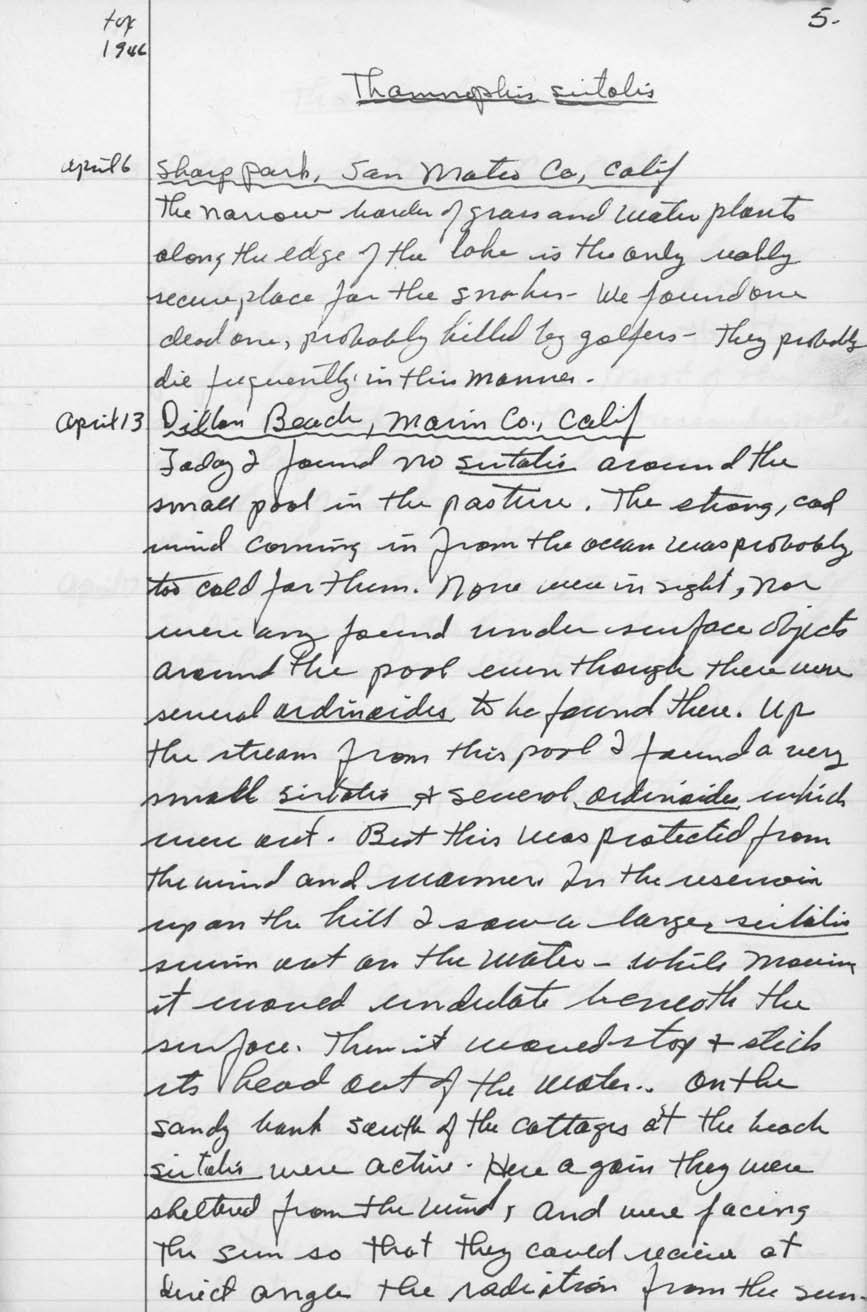 Fox
1946
5.
Thamnophis sirtalis
April 6
Sharp Park, San Mateo Co, Calif
The narrow border of grass and water plants
along the edge of the lake is the only really
secure place for the snakes - We found one
dead one, probably killed by golfers - They probably
die frequently in this manner -
April 13
Dillon Beach, Marin Co., Calif
Today I found no sirtalis around the
small pool in the pasture. The strong, cool
wind coming in from the ocean was probably
too cold for them. None were in sight, nor
were any found under surface objects
around the pool even though there were
several ordinoides to be found there. Up
the stream from this pool I found a very
small sirtalis & several ordinoides which
were out. But this was protected from
the wind and warmer. In the reservoir
up on the hill I saw a large sirtalis
swim out on the water - while moving
it would undulate beneath the
surface. Then it would stop & stick
its head out of the water.. On the
sandy bank south of the cottages at the beach
sirtalis were active. Here again they were
sheltered from the wind, and were facing
the sun so that they could receive at
direct angle the radiation from the sun.